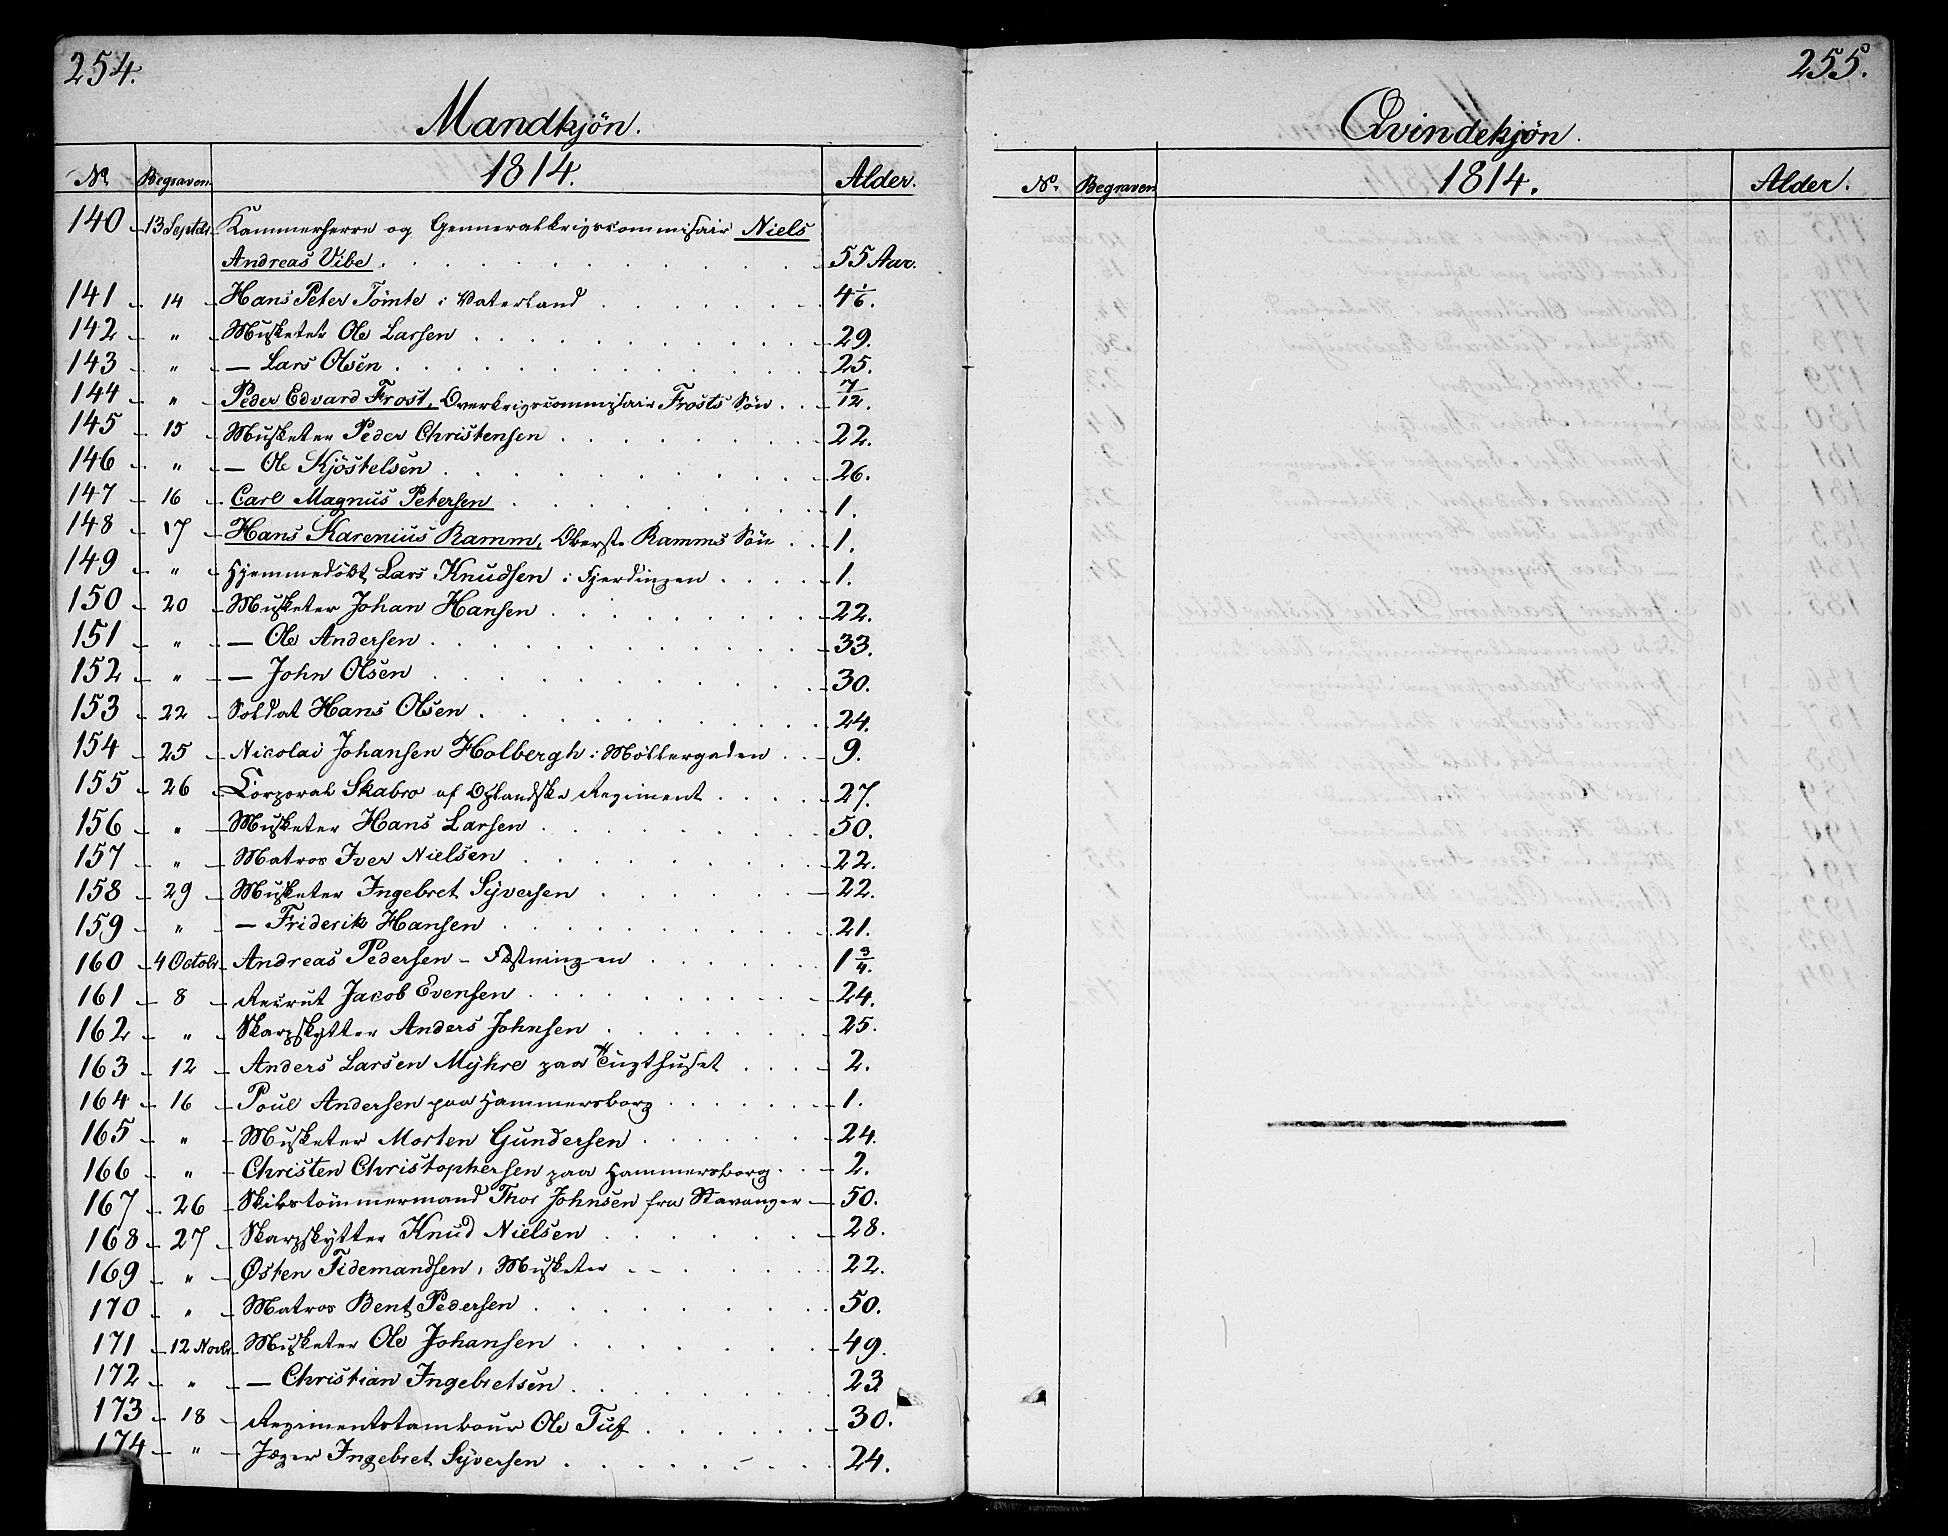 254.
Mandkjön.
No. Begraven. 1814. Alder.
140 13 Septbr. Kammerherre og Generalkrigscommissair Niels
Andreas Vibe 55 Aar.
141 14 Hans Peter Tömte i Vaterland 4 1/6.
142 " Musketer Ole Larsen 29.
143 " — Lars Olsen 25.
144 " Peder Edvard Frost, Overkrigscommissair Frosts Sön 7/12.
145 15 Musketer Peder Christensen 22.
146 " — Ole Kjöstelsen 26.
147 16 Carl Magnus Petersen 1.
148 17 Hans Karenius Ramm, Oberst Ramms Sön 1.
149 " Hjemmedöbt Lars Knudsen i Fjerdingen 1.
150 20 Musketer Johan Hansen 22.
151 " — Ole Andersen 33.
152 " — John Olsen 30.
153 22 Soldat Hans Olsen 24.
154 25 Nicolai Johansen Holbergh i Möllergaden 9.
155 26 Corporal Skabro af Oplandske Regiment 27.
156 " Musketer Hans Larsen 50.
157 " Matros Iver Nielsen 22.
158 29 Musketer Ingebret Syversen 22.
159 " — Friderik Hansen 21.
160 4 Octobr. Andreas Pedersen – Fæstningen 1 3/4.
161 8 Recrut Jacob Evensen 24.
162 " Skarpskytter Anders Johnsen 25.
163 12 Anders Larsen Myhre paa Tugthuset 2.
164 16 Poul Andersen paa Hammersborg 1.
165 " Musketer Morten Gundersen 24.
166 " Christen Christophersen paa Hammersborg 2.
167 26 Skibstömmermand Thor Johnsen fra Stavanger 50.
168 27 Skarpskytter Knud Nielsen 28.
169 " Østen Tidemandsen, Musketer 22.
170 " Matros Bent Pedersen 50.
171 12 Novbr. Musketer Ole Johansen 49.
172 " — Christian Ingebretsen 23
173 18 Regimentstambour Ole Tuf 30.
174 " Jæger Ingebret Syversen 24.
255.
Qvindekjön.
No. Begraven 1814. Alder.